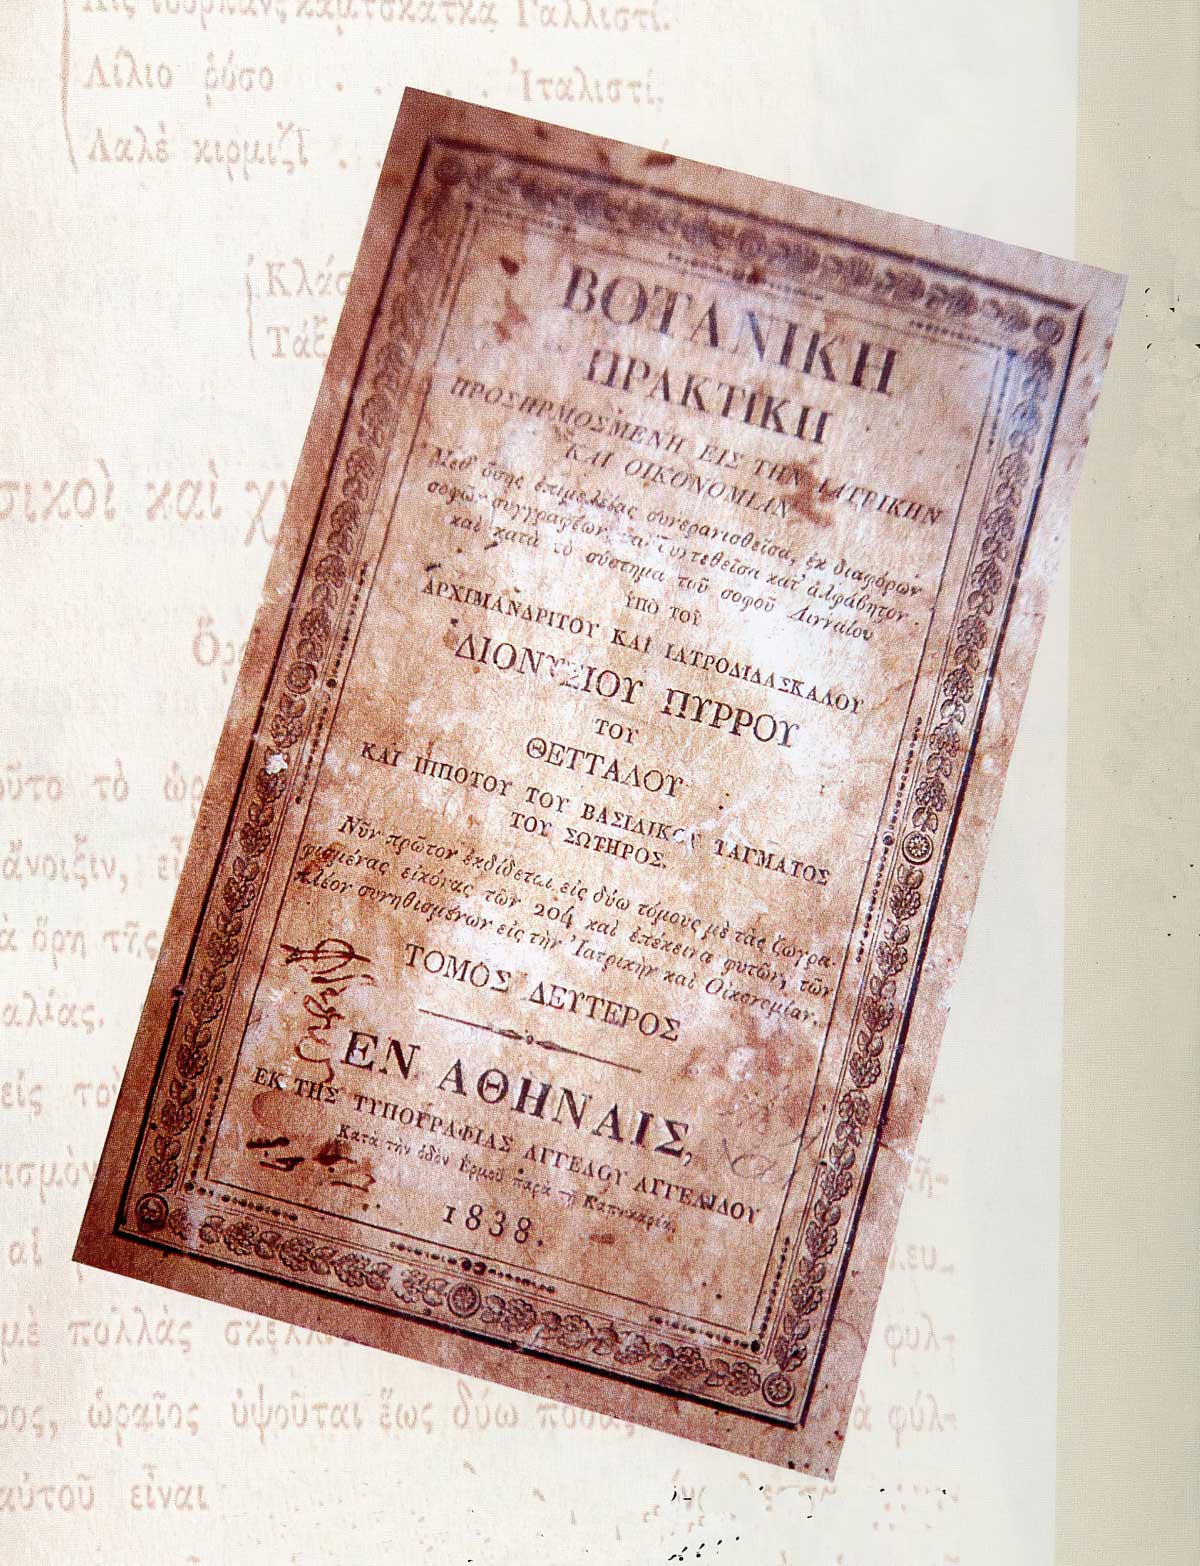 Λίλιο ῥόσο . . . . . Ἰταλιστί.
Λαλὲ κιρμιζῖ . .
ΒΟΤΑΝΙΚΗ
ΠΡΑΚΤΙΚΗ
ΠΡΟΣΗΡΜΟΣΜΕΝΗ ΕΙΣ ΤΗΝ ΙΑΤΡΙΚΗΝ
ΚΑΙ ΟΙΚΟΝΟΜΙΑΝ
Μεθ' ὅσης ἐπιμελείας συνερανισθεῖσα, ἐκ διαφόρων
σοφῶν συγγραφέων, καὶ συντεθεῖσα κατ' ἀλφάβητον
καὶ κατὰ τὸ σύστημα τοῦ σοφοῦ Λινναίου
ὑπὸ τοῦ
ΑΡΧΙΜΑΝΔΡΙΤΟΥ ΚΑΙ ΙΑΤΡΟΔΙΔΑΣΚΑΛΟΥ
ΔΙΟΝΥΣΙΟΥ ΠΥΡΡΟΥ
ΤΟΥ
ΘΕΤΤΑΛΟΥ
ΚΑΙ ΙΠΠΟΤΟΥ ΤΟΥ ΒΑΣΙΛΙΚΟΥ ΤΑΓΜΑΤΟΣ
ΤΟΥ ΣΩΤΗΡΟΣ.
Νῦν πρῶτον ἐκδίδεται εἰς δύω τόμους μὲ τὰς ζωγρα-
φισμένας εἰκόνας τῶν 204 καὶ ἐπέκεινα φυτῶν, τῶν
πλέον συνηθισμένων εἰς τὴν Ἰατρικὴν καὶ Οἰκονομίαν.
ΤΟΜΟΣ ΔΕΥΤΕΡΟΣ
ΕΝ ΑΘΗΝΑΙΣ,
ΕΚ ΤΗΣ ΤΥΠΟΓΡΑΦΙΑΣ ΑΓΓΕΛΟΥ ΑΓΓΕΛΙΔΟΥ
Κατὰ τὴν ὁδὸν Ἑρμοῦ παρὰ τῇ Καπνικαρέα.
1838.
ἄνοιξιν,
ὄρη τῆς
αλίας.
εἰς
αἱ
μὲ πολλὰς
ὡραῖος ὑψοῦται ἕως δύω φύλ-
αὐτοῦ εἶναι